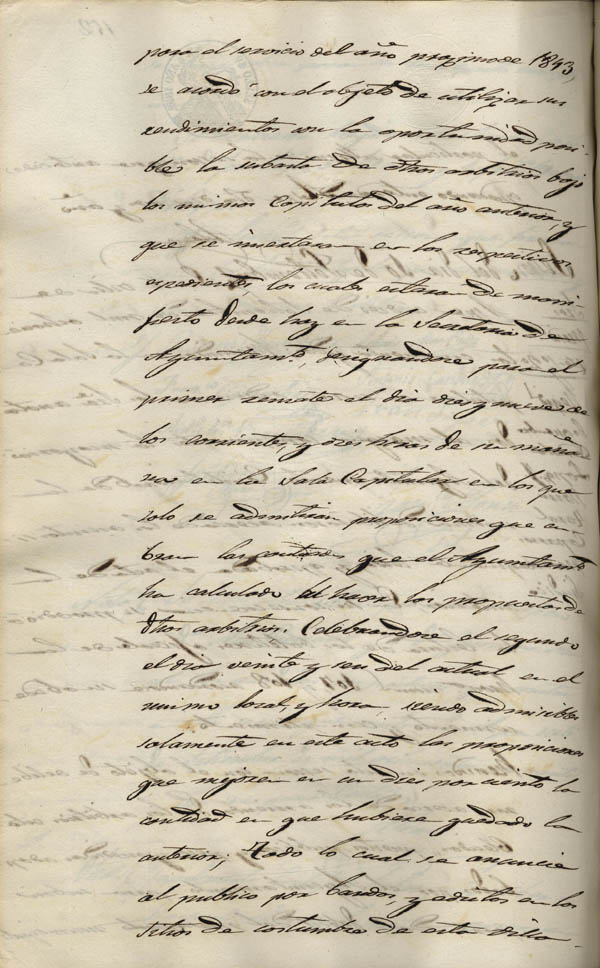 para el servicio del año proximo de 1843,
se acordó con el objeto de utilizar sus
rendimientos con la oportunidad posi-
ble la subasta de dhos arbitrios bajo
los mismos Capitulos del año anterior, y
que se insertaran en los respectivos
expedientes, los cuales estaran de mani-
fiesto desde hoy en la Secretaria de
Ayuntamto., designandose para el
primer remate el dia diez y nueve de
los corrientes, y diez horas de su maña-
na en la Sala Capitular en los que
solo se admitiran proposiciones que cu-
bran las cantidades que el Ayuntamto
ha calculado al hacer los propuestos de
dhos arbitrios. Celebrandose el segundo
el dia veinte y seis del actual en el
mismo local, y hora, siendo admisibles
solamente en este acto las proposiciones
que mejoren en un diez por ciento la
cantidad en que hubiere quedado la
anterior; Todo lo cual se anuncie
al publico por bandos, y edictos en los
sitios de costumbre de esta villa